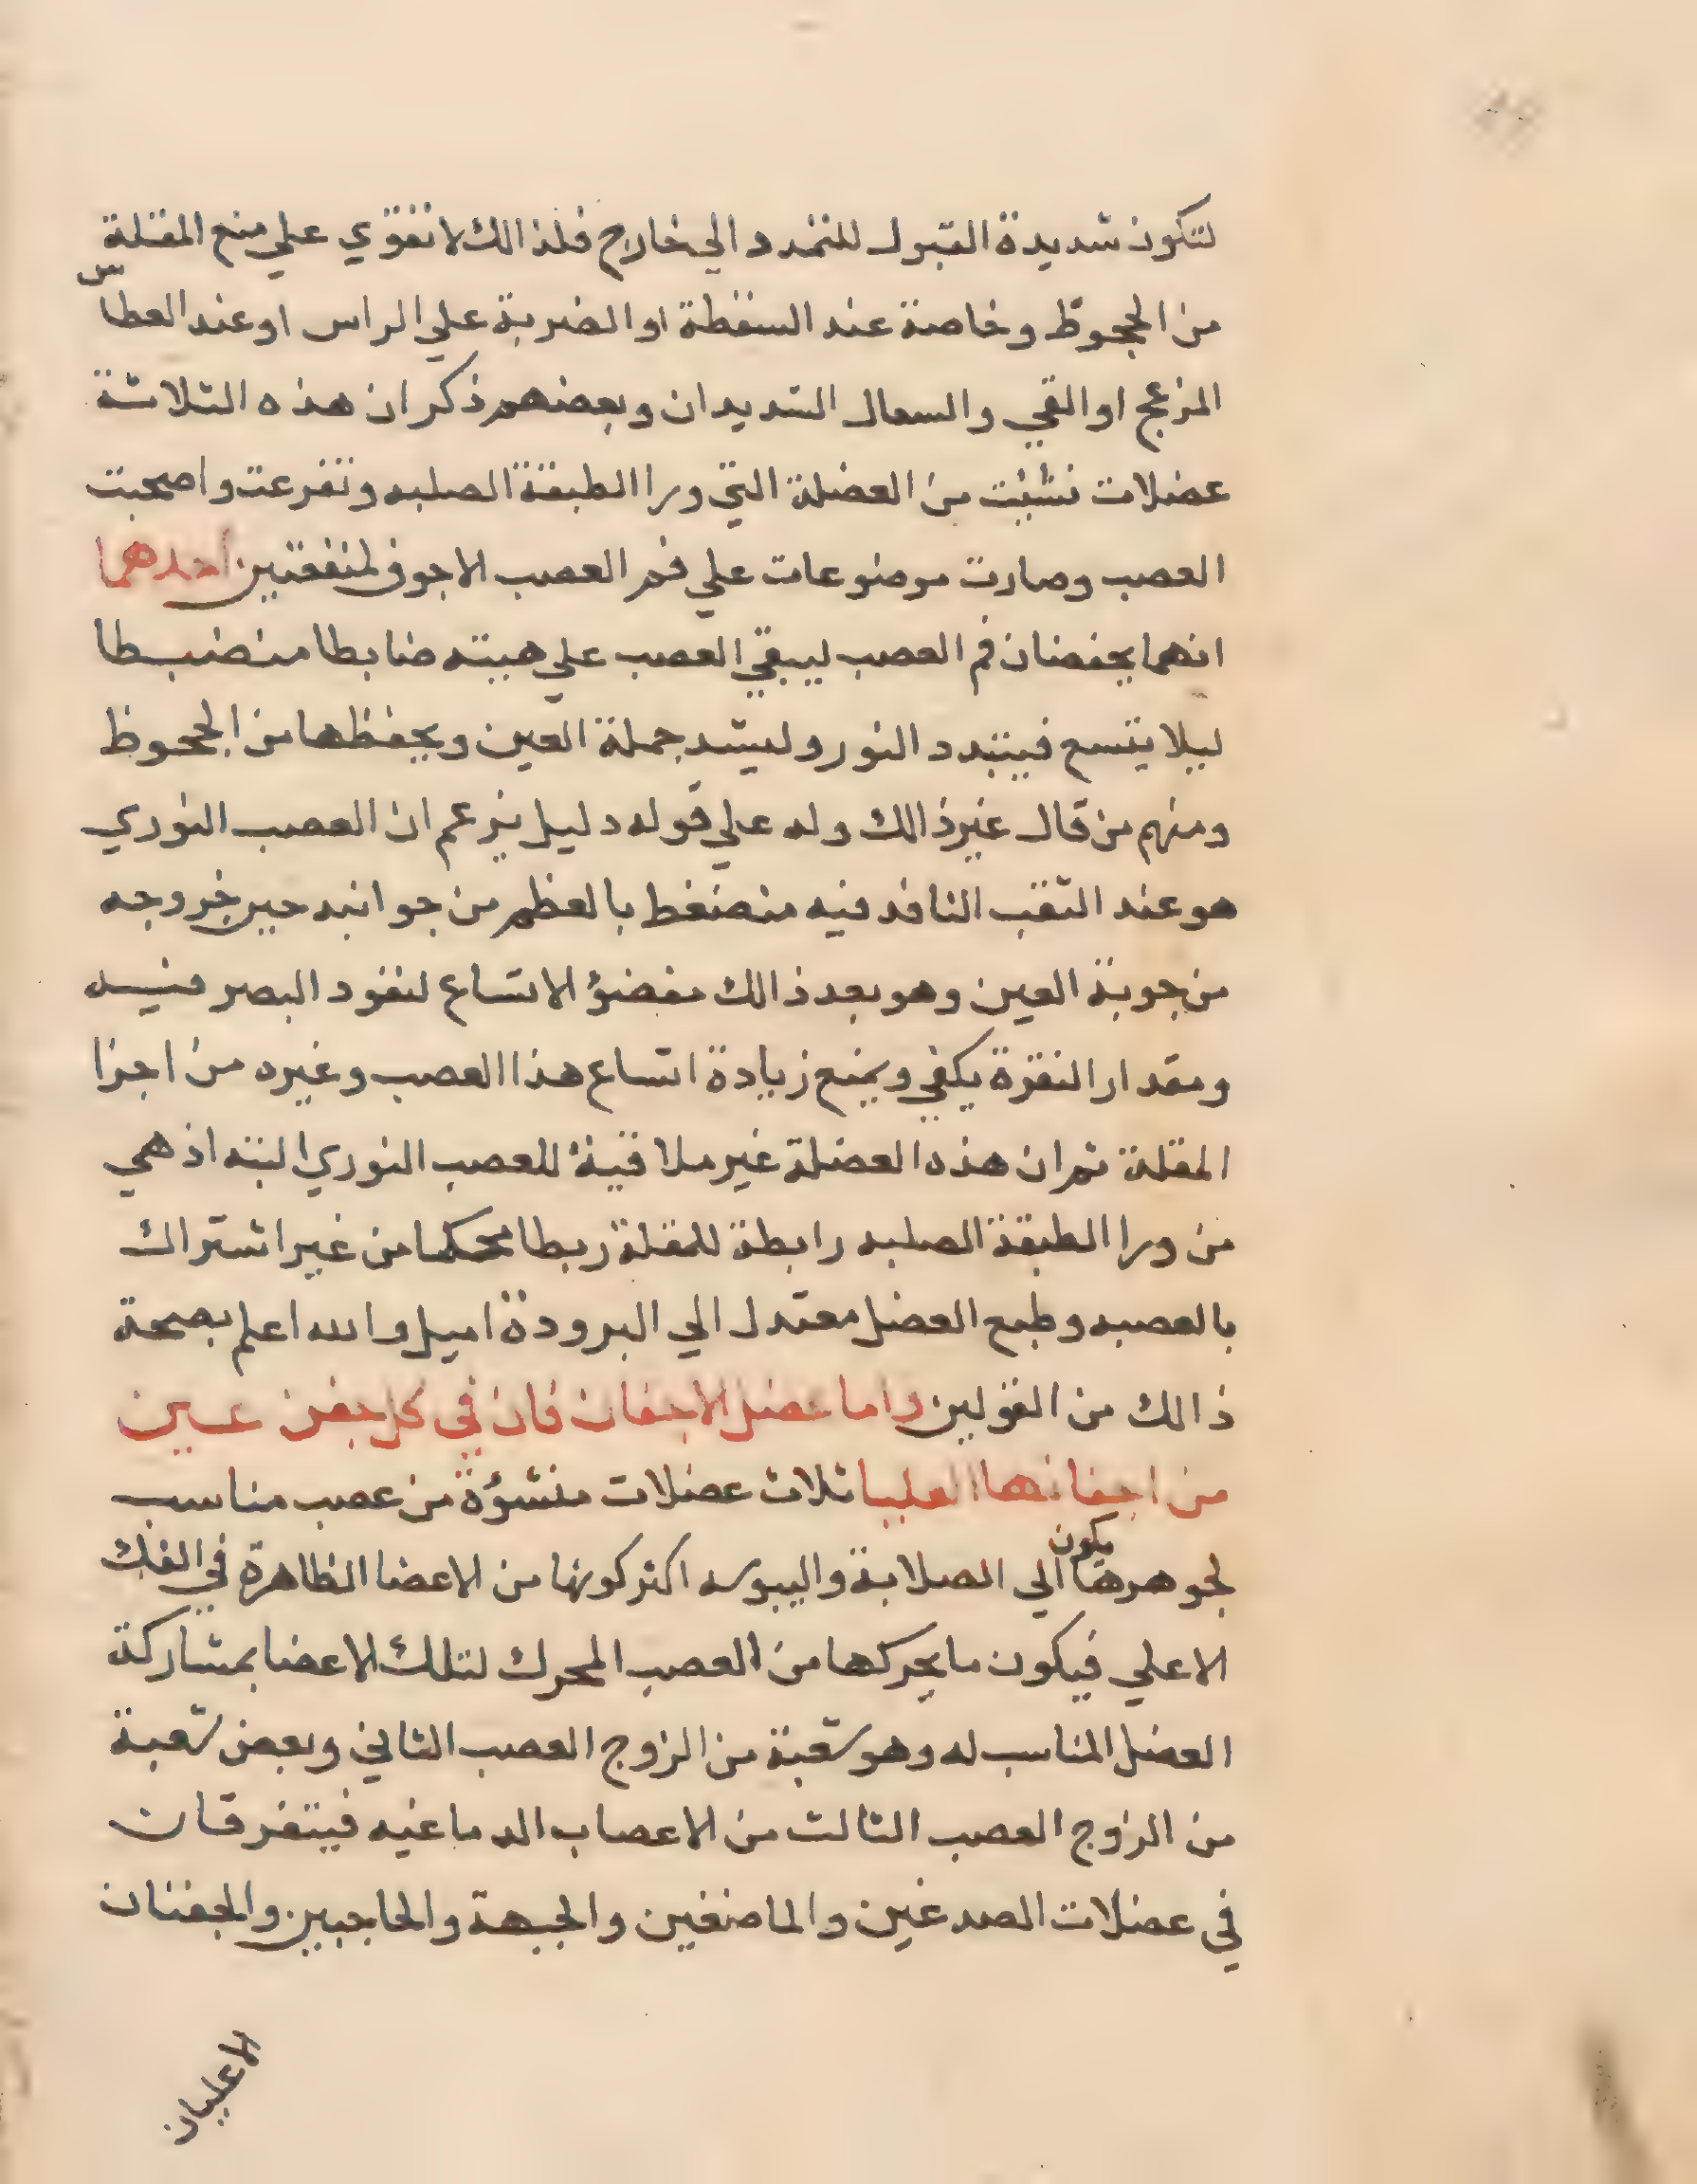 لتكون شديدة القبول للتمدد الي خارج فلذالك لا تقوي علي منع المقلة
من الجحوظ وخاصة عند السقطة او الضربة علي الراس او عند العطاس
المزعج او القي والسعال الشديدان وبعضهم ذكر ان هذه الثلاثة
عضلات نشئت من العضلة التي ورا الطبقة الصلبه وتفرعت واصحبت
العصب وصارت موضوعات علي فم العصب الاجوف لمنفعتين احدهما
انهما يحفضان فم العصب ليبقي العصب علي هيبته ضابطا منضبطا
ليلا يتسع فيتبدد النور وليشد جملة العين ويحفظها من الجحوظ
ومنهم من قال غير ذالك وله علي قوله دليل يزعم ان العصب النوري
هو عند الثقب النافد فيه منضغط بالعظم من جوانبه حين خروجه
من جوبة العين وهو بعد ذالك مفضؤ الاتساع لنفود البصر فيه
ومقدار النقرة يكفي ويمنع زيادة اتساع هذا العصب وغيره من اجزا
المقلة ثم ان هذه العضلة غير ملاقية للعصب النوري البته اذ هي
من ورا الطبقة الصلبه رابطة للمقلة ربطا محكما من غير اشتراك
بالعصبه وطبع العضل معتدل الي البرودة اميل والله اعلم بصحة
ذالك من القولين واما عضل الاجفان فان في كل جفن عين
من اجفانها العليا ثلاث عضلات منشؤة من عصب مناسب
لجوهرها يكون الي الصلابة واليبوسه اكثر كونها من الاعضا الظاهرة في الفك
الاعلي فيكون ما يحركها من العصب المحرك لتلك الاعضا بمشاركة
العضل المناسب له وهو شعبة من الزوج العصب الثاني وبعض شعبة
من الزوج العصب الثالث من الاعصاب الدماغيه فيتفرقان
في عضلات الصدغين والماضغين والجبهة والحاجبين والجفنان
الاعليان